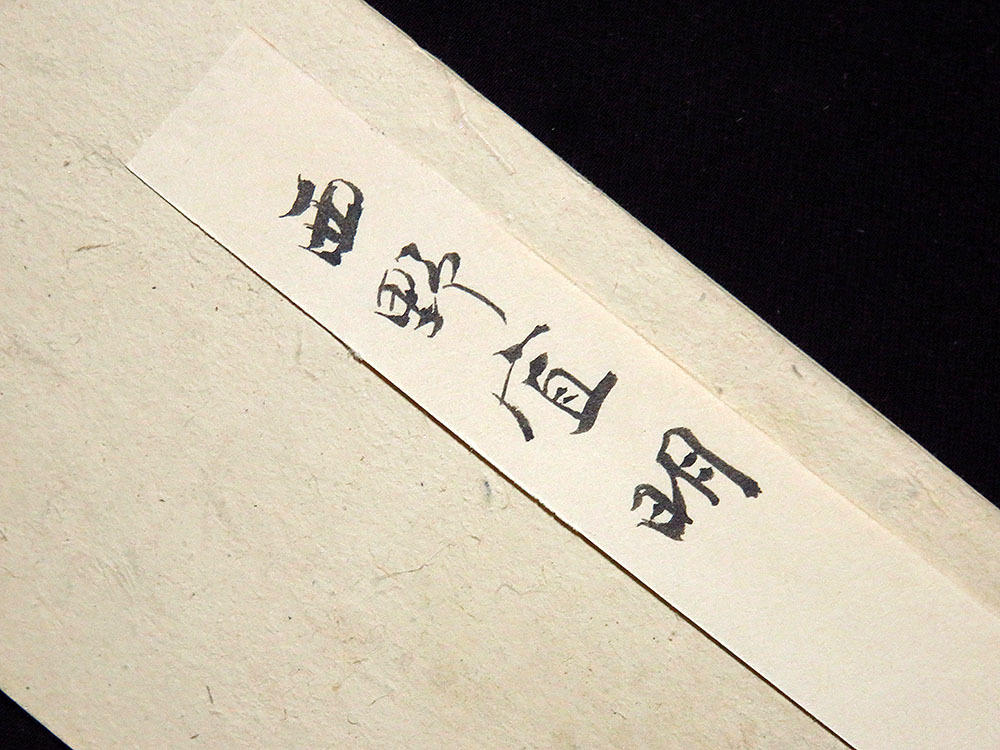 西野宣明